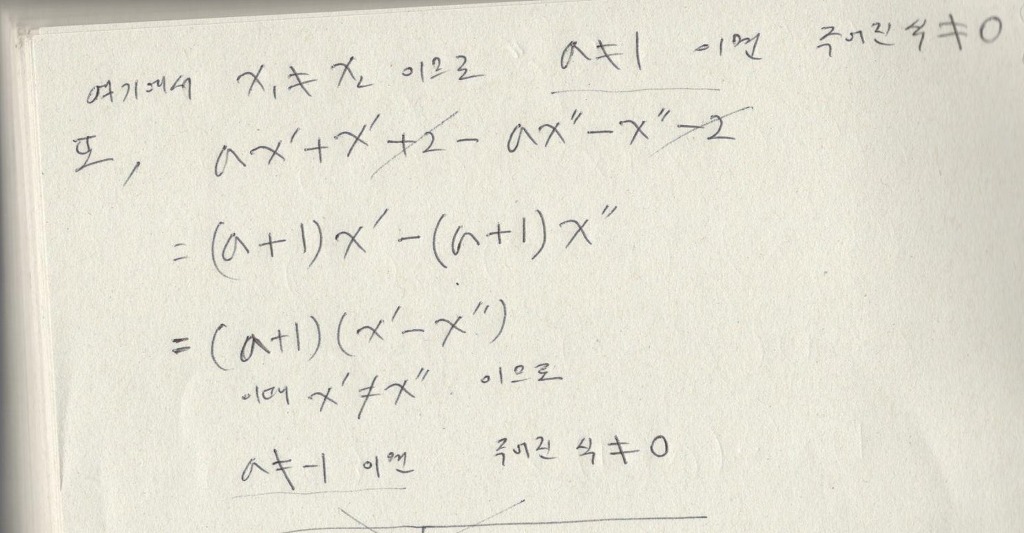 여기에서 x₁ ≠ x₂ 이므로 a≠1 이면 주어진 식≠0
또, ax′+x′+2-ax″-x″-2
=(a+1)x′-(a+1)x″
=(a+1)(x′-x″)
이때 x′≠x″ 이므로
a≠-1 이면 주어진 식≠0